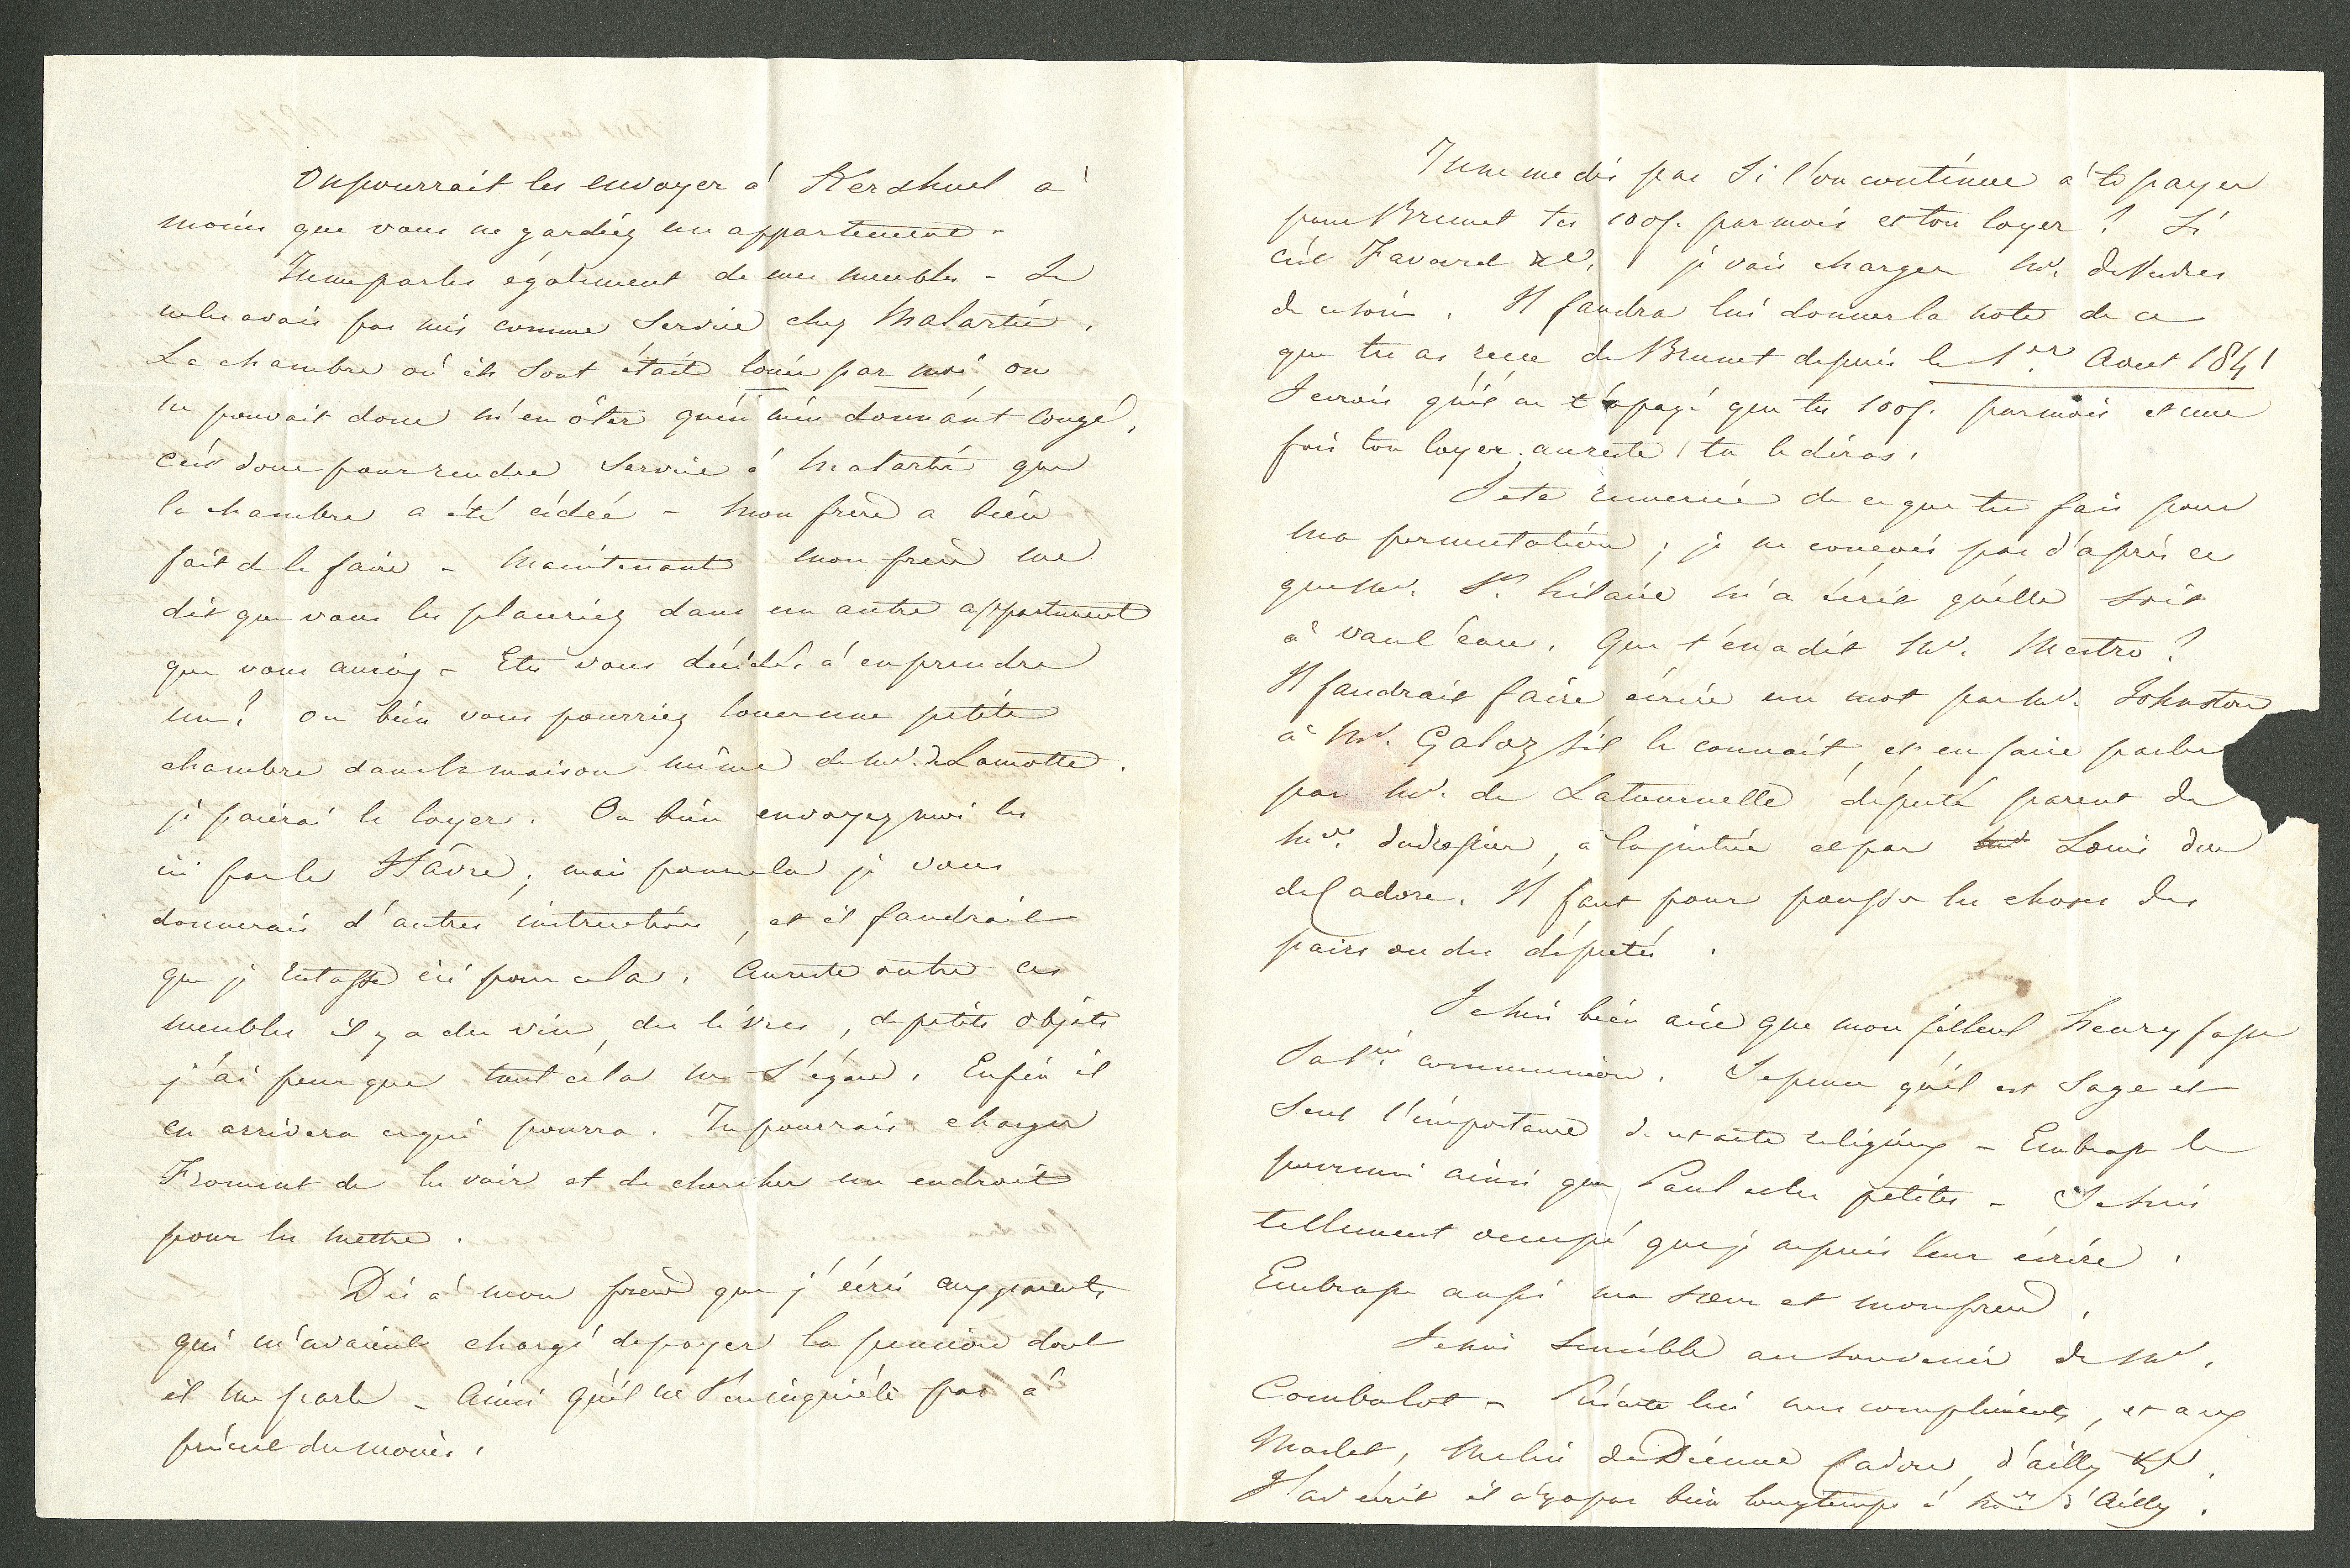 On pourrait les envoyer à Kerdhuel à
moins que vous ne gardiez un appartement.
Tu me parles également de mes meubles - Je
ne les avais pas mis comme service chez Malartic.
La chambre où ils sont était louée par moi, on
ne pouvait donc m'en ôter qu'en m'en donnant congé,
c'est donc pour rendre service à Malartic que
la chambre a été cédée - mon frère a bien
fait de le faire - Maintenant mon frère me
dit que vous les placeriez dans un autre appartement
que vous auriez - Etes vous décidés à en prendre
un? ou bien vous pourriez louer une petite
chambre dans la maison même de Mr. de Lamotte.
je paierai le loyer. Ou bien envoyez moi les
ici par le Hâvre; mais pour cela je vous
donnerais d'autres instructions, et il faudrait
que je restasse ici pour cela. Au reste outre ces
meubles il y a du vin, des livres, de petits objets
j'ai peur que tout cela ne s'égare. Enfin il
en arrivera ce qui pourra. Tu pourrais charger
Froment de les voir et de chercher un endroit
pour les mettre.
Dis à mon frère que j'écris aux parents
qui m'avaient chargé de payer la pension dont
il me parle - Ainsi qu'il ne s'en inquiète pas à
présent du moins.
Tu ne me dis pas si l'on continue à te payer
pour Brunet tes 100f. par mois et ton loyer? Si
c'est Favarel &c. je vais charger Mr.
de ce soin. Il faudra lui donner la note de ce
que tu as reçu de Brunet depuis le 1er. Aout 1841
Je crois qu'il ne t'a payé que tes 100f. par mois et une
fois ton loyer; au reste tu le diras.
Je te remercie de ce que tu fais pour
ma permutation; je ne conçois pas d'après ce
que Mr. St. hilaire m'a écrit qu'elle soit
à vau l'eau. Que t'en a dit Mr. Mestro?
Il faudrait faire écrire un mot par Mr. Johnston
à Mr. Galoz s'il le connait, et en faire parler
par Mr. de Latournelle député parent de
à la justice et par Louis duc
de Cadore. Il faut pour pousser les choses des
pairs ou des députés.
Je suis bien aise que mon filleul henry fasse
sa 1ère communion. Je pense qu'il est sage et
sent l'importance de cet acte religieux - Embrasse le
pour moi ainsi que Paul et les petites - Je suis
tellement occupé que je ne puis leur écrire.
Embrasse aussi ma soeur et mon frère.
Je suis sensible au souvenir de Mr.
Combalot - Présente lui mes compliments, et aux
Marlet, Melin de Dienne Cadore, d'ailly &c.
J'ai écrit il n'y a pas bien longtemps à Mme d'Ailly.